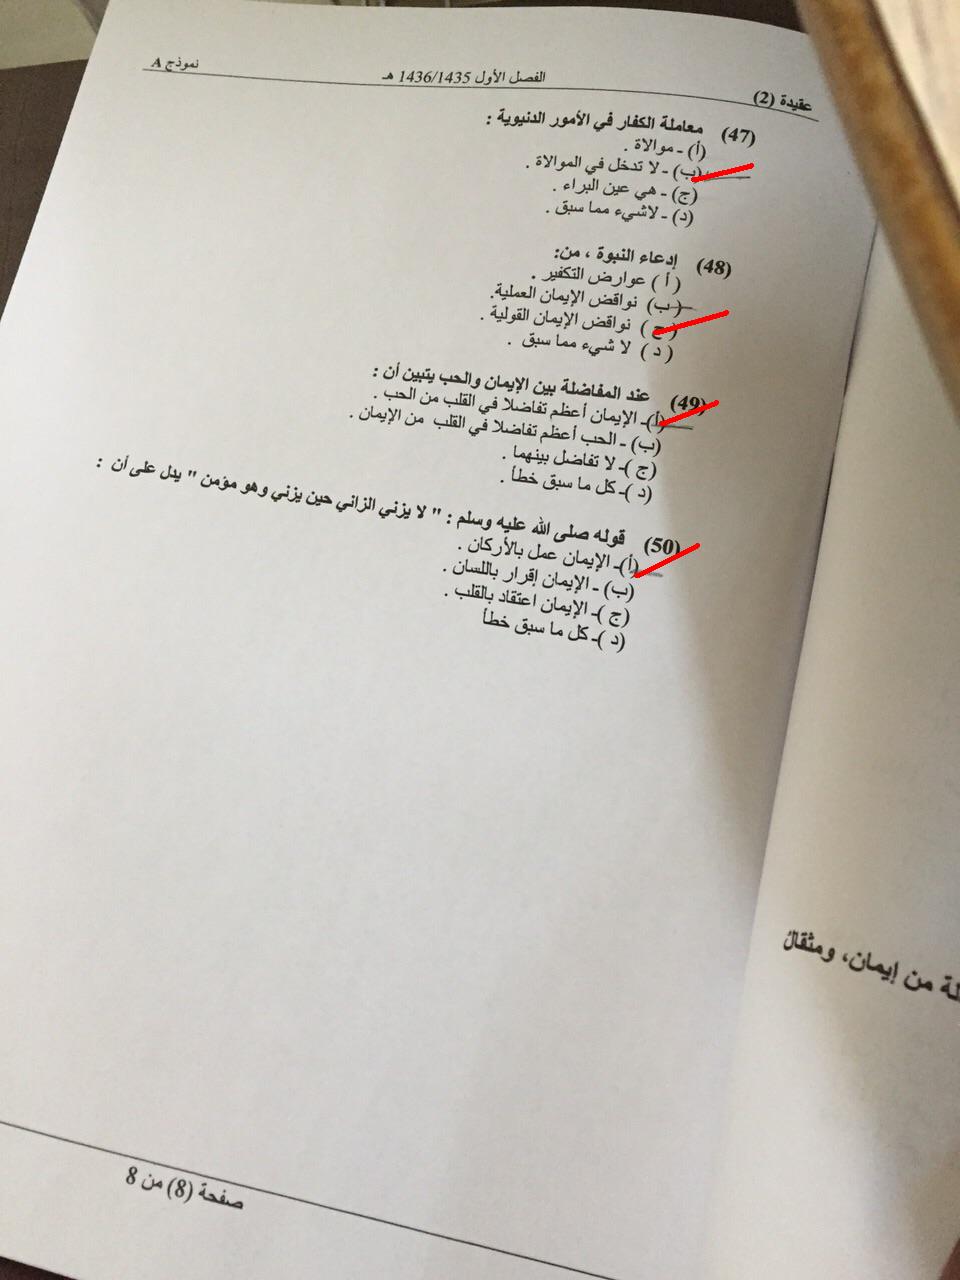 عقيدة (2) الفصل الأول 1436/1435 هـ نموذج A
(47) معاملة الكفار في الأمور الدنيوية :
(أ) - موالاة .
(ب) - لا تدخل في الموالاة .
(ج) - هي عين البراء .
(د) - لاشيء مما سبق .
(48) إدعاء النبوة ، من:
( أ ) عوارض التكفير .
( ب) نواقض الإيمان العملية.
( ج ) نواقض الإيمان القولية .
( د ) لا شيء مما سبق .
(49) عند المفاضلة بين الإيمان والحب يتبين أن :
(أ)ـ الإيمان أعظم تفاضلا في القلب من الحب .
(ب) - الحب أعظم تفاضلا في القلب من الإيمان .
(ج )- لا تفاضل بينهما .
(د )- كل ما سبق خطأ .
(50) قوله صلى الله عليه وسلم : " لا يزني الزاني حين يزني وهو مؤمن " يدل على أن :
(أ)ـ الإيمان عمل بالأركان .
(ب) - الإيمان إقرار باللسان .
(ج )- الإيمان اعتقاد بالقلب .
(د )- كل ما سبق خطأ
من إيمان، ومثقالُ
صفحة (8) من 8